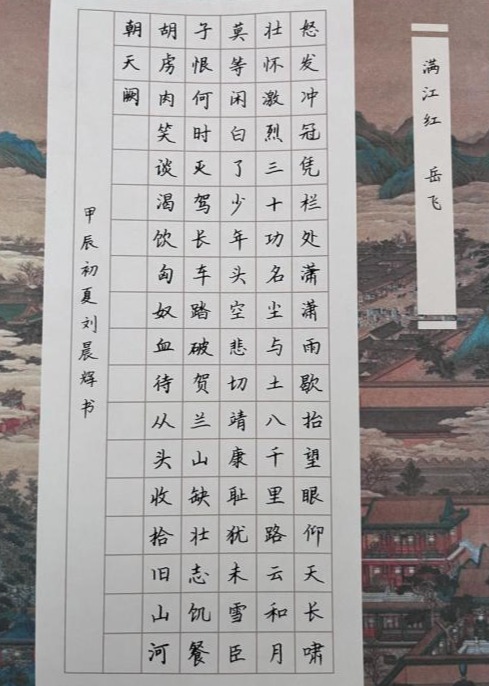 满江红 岳飞
怒发冲冠凭栏处潇潇雨歇抬望眼仰天长啸
壮怀激烈三十功名尘与土八千里路云和月
莫等闲白了少年头空悲切靖康耻犹未雪臣
子恨何时灭驾长车踏破贺兰山缺壮志饥餐
胡虏肉笑谈渴饮匈奴血待从头收拾旧山河
朝天阙
甲辰初夏刘晨辉书